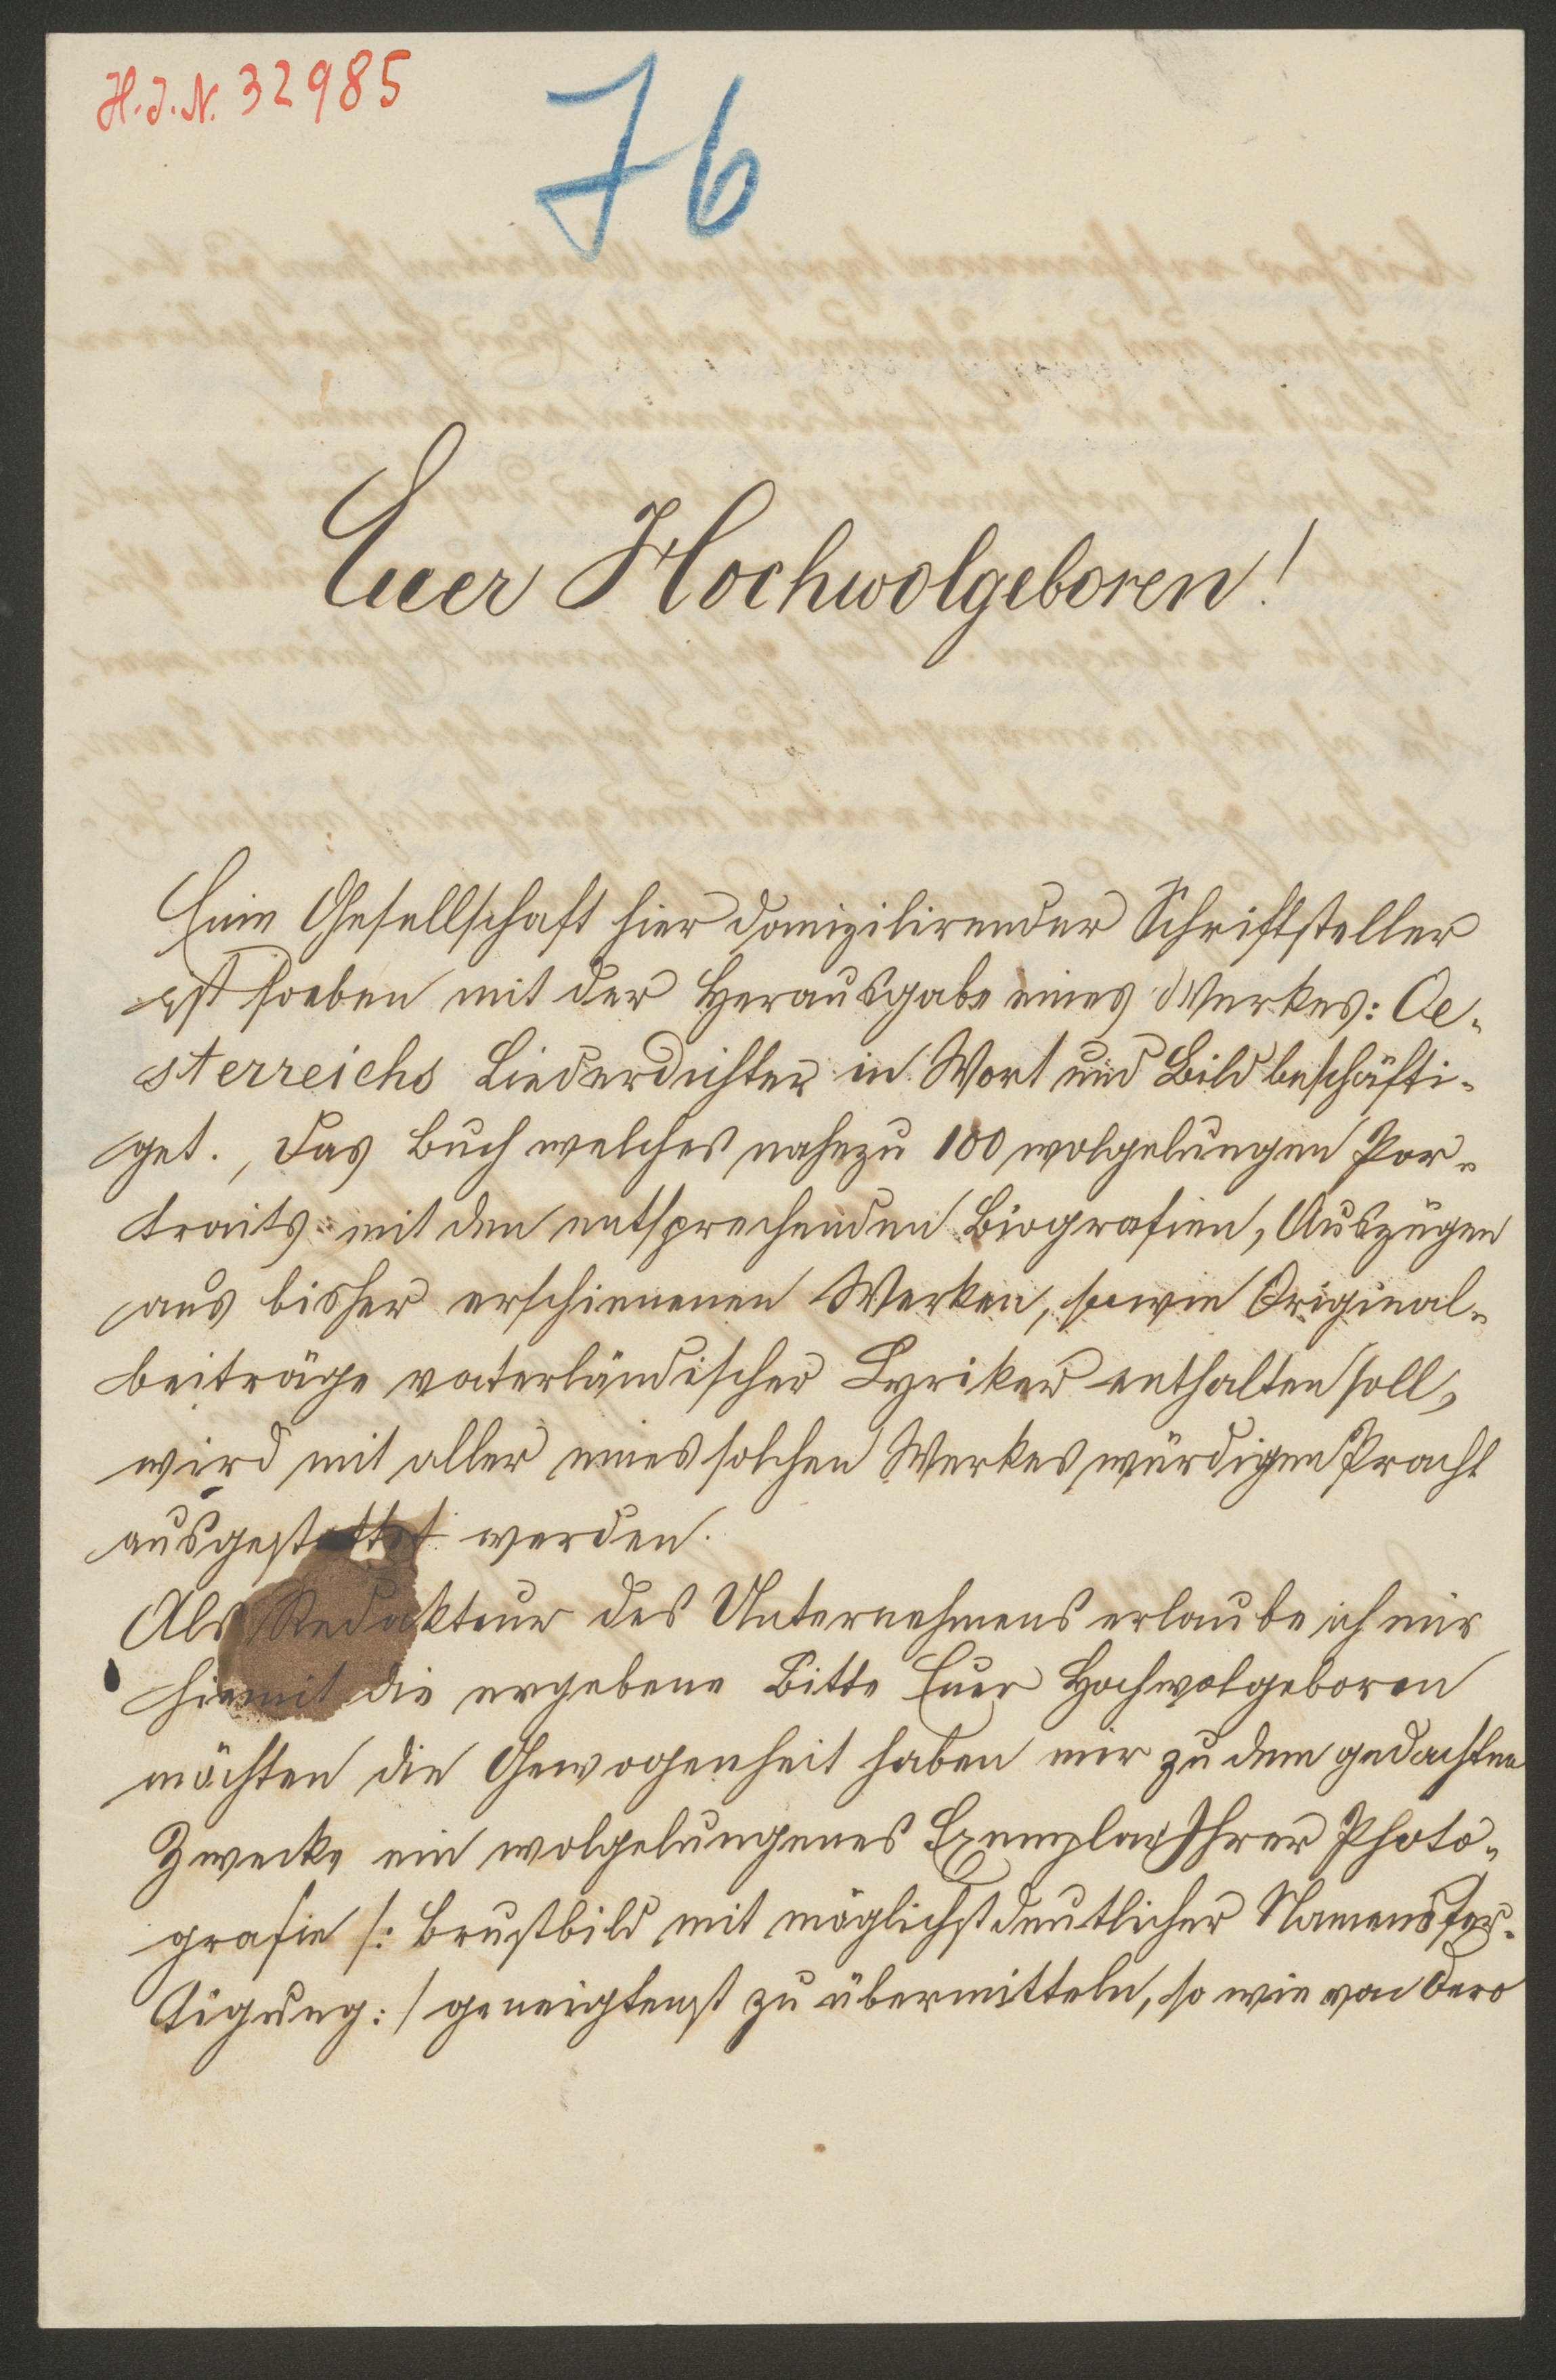 H.J.N. 32985
76
Euer Hochwolgeboren!
Eine Gesellschaft hier domizilirender Schriftsteller
ist soeben mit der Herausgabe eines Werkes: Oe-
sterreichs Liederdichter in Wort und Bild beschäfti-
get. Das Buch welches nahezu 100 wolgelungen Por-
traits mit den entsprechenden Biografien, Auszügen
aus bisher erschienenen Werken, sowie Original-
beiträge vaterländischer Lyriker enthalten soll,
wird mit aller eines solchen Werkes würdigen Pracht
ausgestattet werden.
Als Redakteur des Unternehmens erlaube ich mir
hiemit die ergebene Bitte Euer Hochwolgeboren
möchten die Gewogenheit haben mir zu dem gedachten
Zwecke ein wolgelungenes Exemplar Ihrer Photo-
grafie /: Brustbild mit möglichst deutlicher Namensfer-
tigung :/ geneigtenst zu übermitteln, so wie von Dero